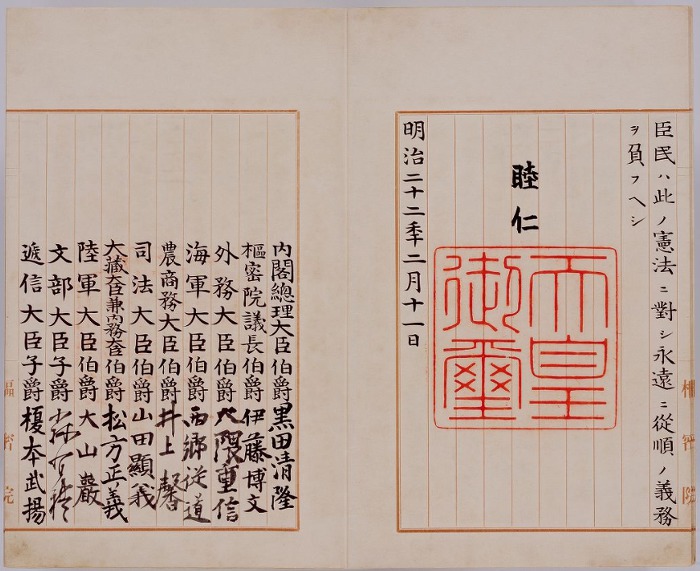 臣民ハ此ノ憲法ニ對シ永遠ニ從順ノ義務
ヲ負フヘシ
睦仁
天皇
御璽
明治二十二年二月十一日
內閣總理大臣伯爵黑田清隆
樞密院議長伯爵伊藤博文
外務大臣伯爵大隈重信
海軍大臣伯爵西鄉從道
農商務大臣伯爵井上馨
司法大臣伯爵山田顯義
大藏大臣兼內務大臣伯爵松方正義
陸軍大臣伯爵大山巖
文部大臣子爵
遞信大臣子爵榎本武揚
樞密院
樞密院